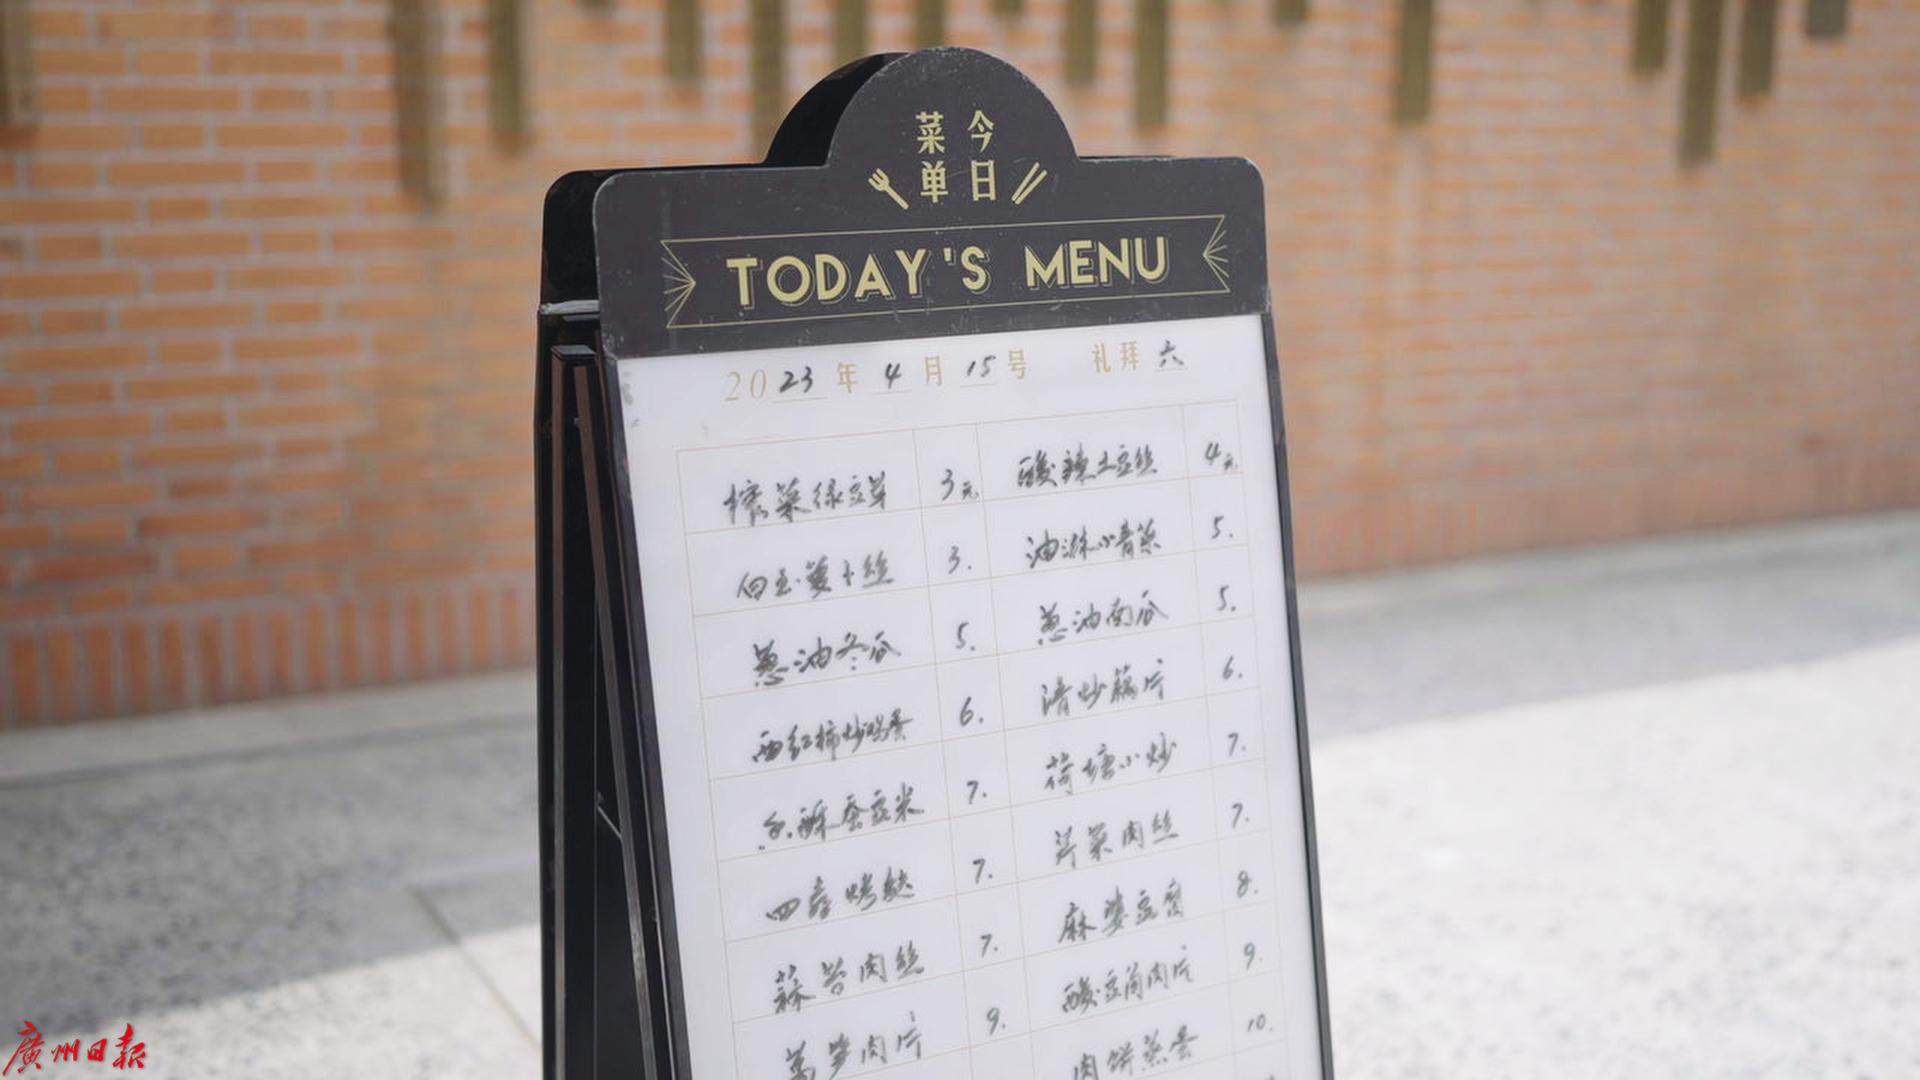 今日
菜单
TODAY'S MENU
2023年4月15号 礼拜六
榨菜绿豆芽 3元 酸辣土豆丝 4元
白玉萝卜丝 3. 油淋小青菜 5.
葱油冬瓜 5. 葱油南瓜 5.
西红柿炒鸡蛋 6. 清炒藕片 6.
葱酥蚕豆米 7. 荷塘小炒 7.
四喜烤麸 7. 芹菜肉丝 7.
蒜苔肉丝 7. 麻婆豆腐 8.
莴笋肉片 9. 酸豆角肉片 9.
肉饼蒸蛋 10.
廣州日报